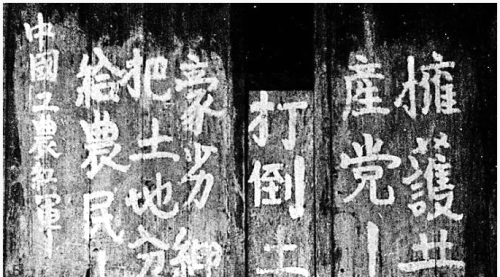 擁護共
產党！
打倒土
豪劣紳
把土地分
給農民！
中國工農紅軍！